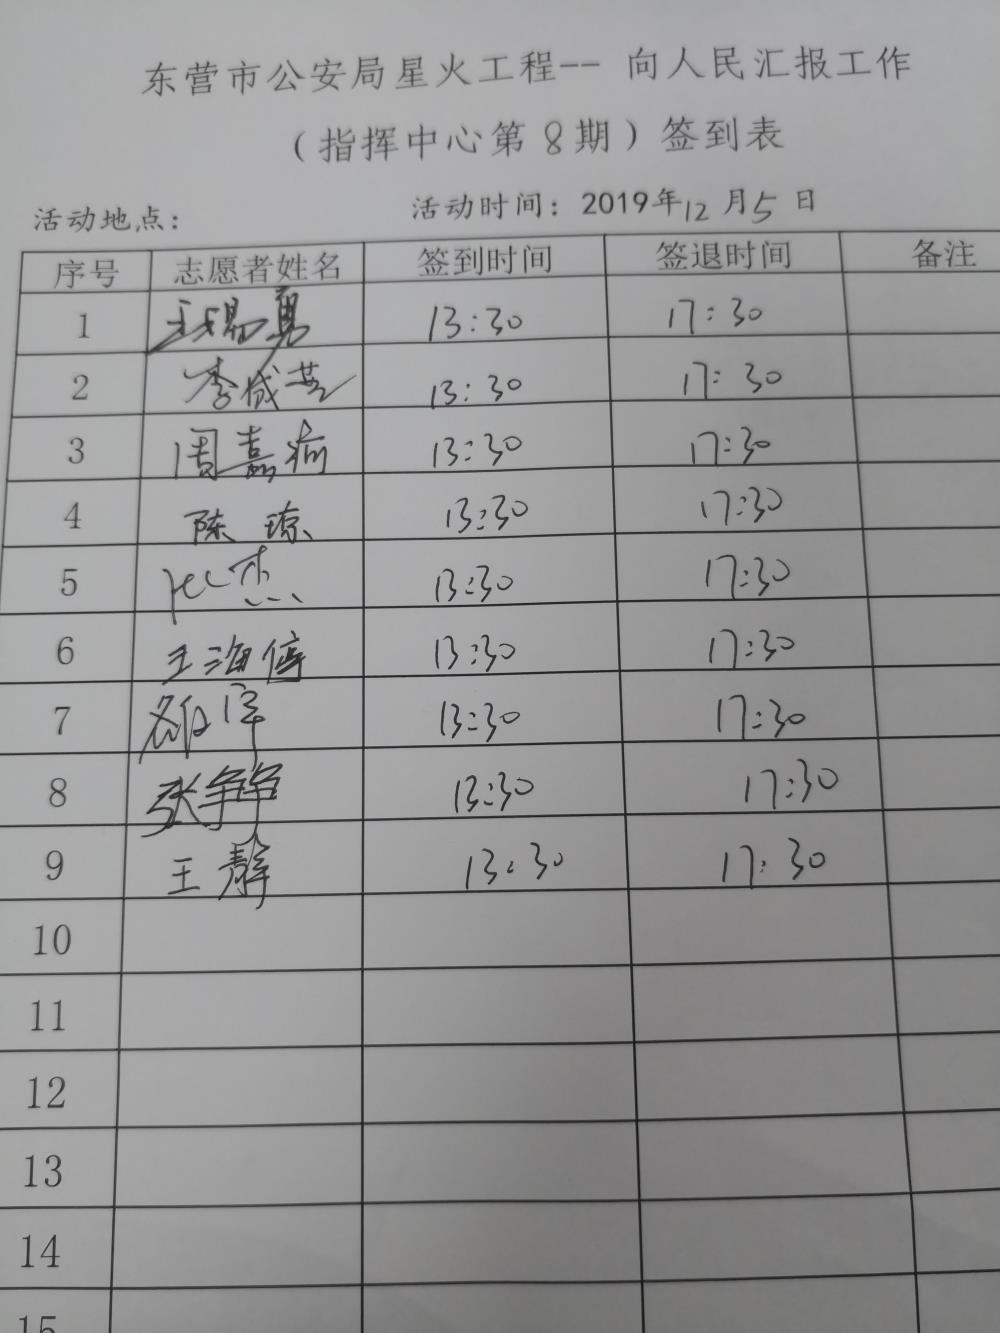 东营市公安局星火工程-- 向人民汇报工作
（指挥中心第 8 期）签到表
活动地点： 活动时间：2019年12月5日
序号 志愿者姓名 签到时间 签退时间 备注
1 13:30 17:30
2 李成芸 13:30 17:30
3 周嘉 13:30 17:30
4 陈琼 13:30 17:30
5 13:30 17:30
6 王海 13:30 17:30
7 13:30 17:30
8 张争争 13:30 17:30
9 王静 13:30 17:30
10
11
12
13
14
15